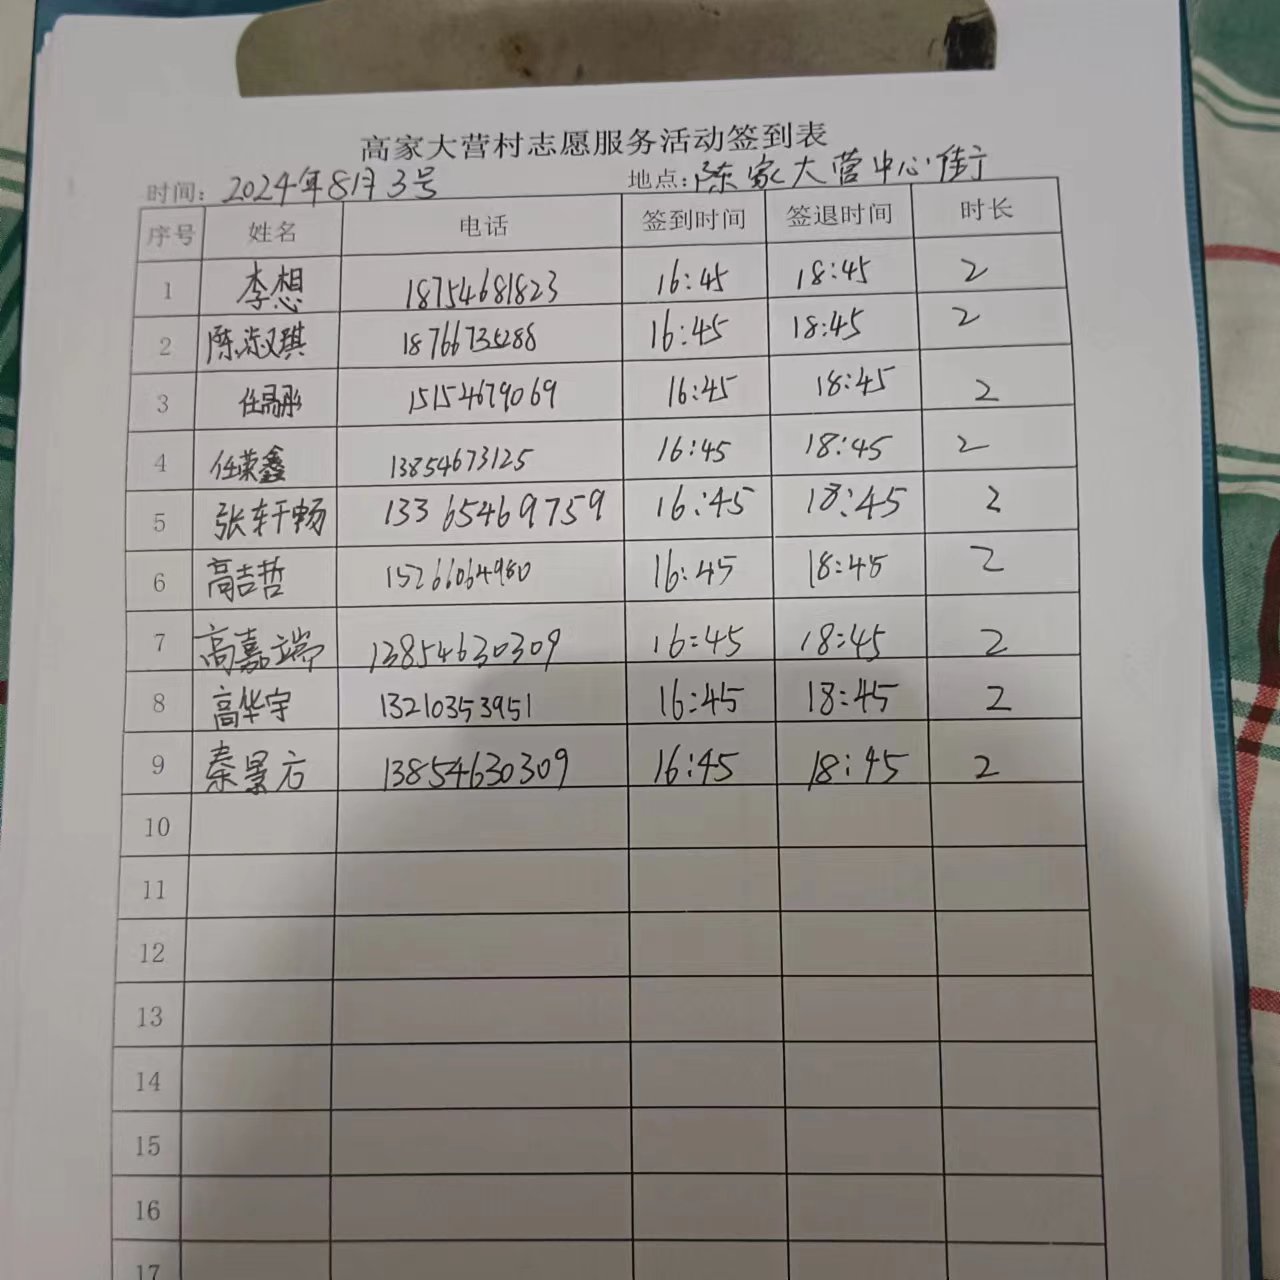 高家大营村志愿服务活动签到表
时间: 2024年8月3号 地点: 陈家大营中心街
序号 姓名 电话 签到时间 签退时间 时长
1 李想 18754681823 16:45 18:45 2
2 陈 琪 16:45 18:45 2
3 任 15154679069 16:45 18:45 2
4 任荣鑫 13854673125 16:45 18:45 2
5 张轩畅 13365469759 16:45 18:45 2
6 高吉哲 15266064980 16:45 18:45 2
7 高嘉端 13854630309 16:45 18:45 2
8 高华宇 13210353951 16:45 18:45 2
9 秦景方 13854630309 16:45 18:45 2
10
11
12
13
14
15
16
17